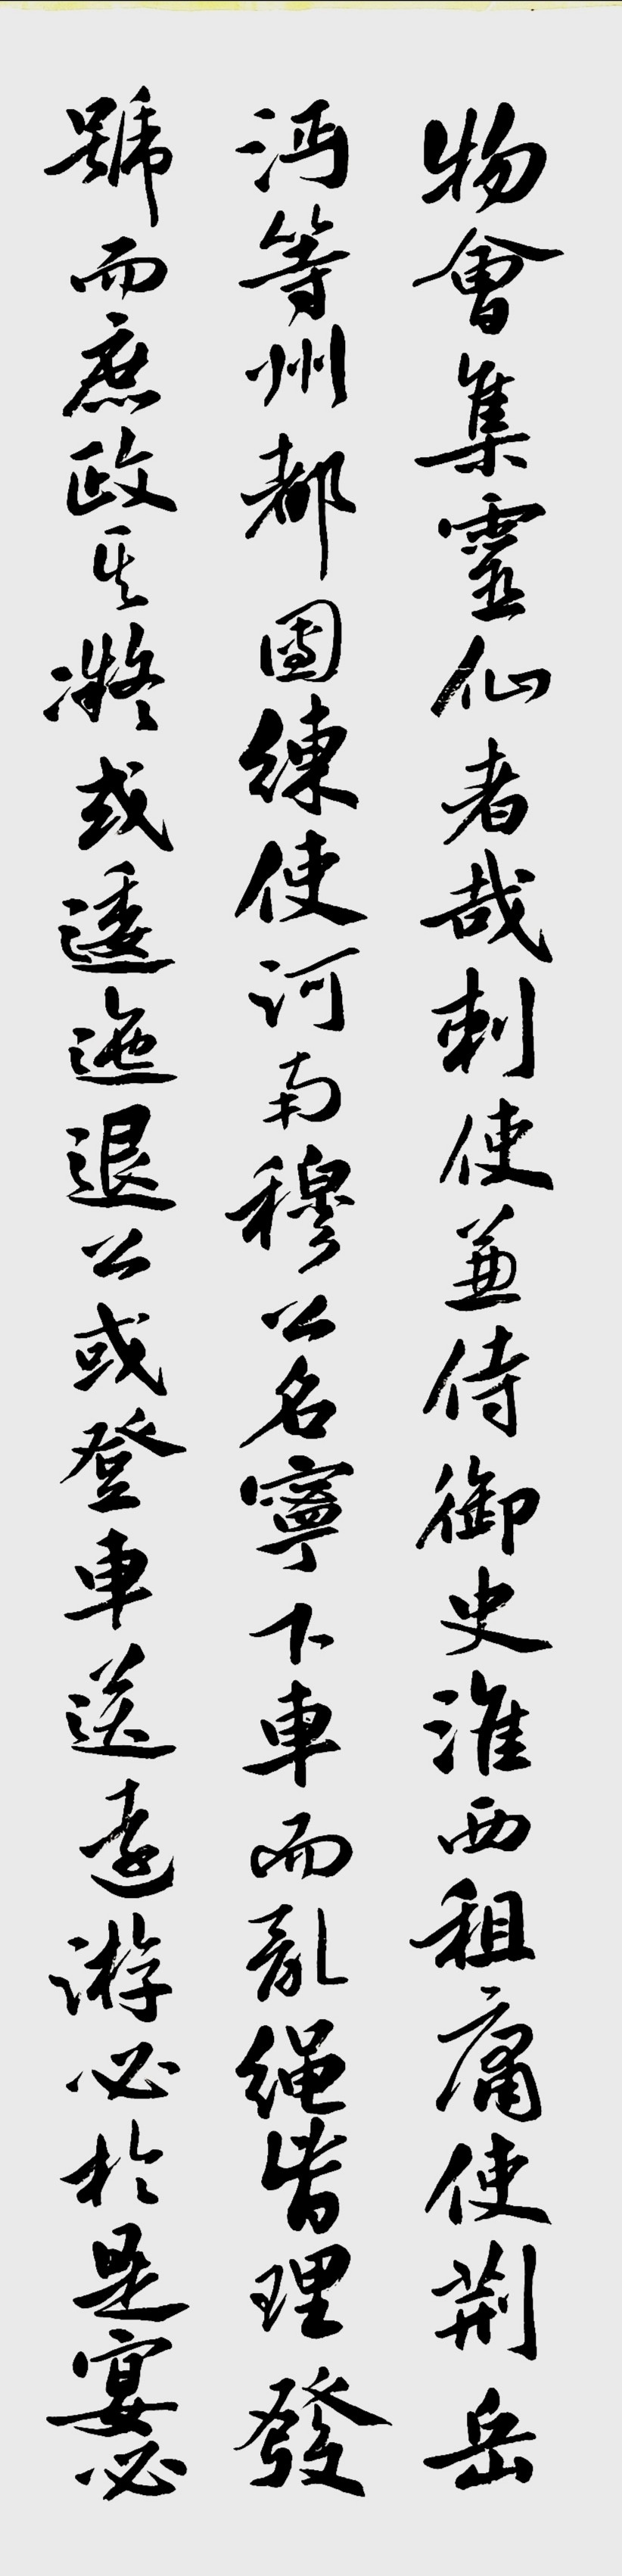 物會集靈仙者哉刺使蒹侍御史淮西租庸使荆岳
沔等州都團練使河南穆公名寧下車而亂绳皆理發
號而庶政其凝或逶迤退公或登車送遠游必於是宴必